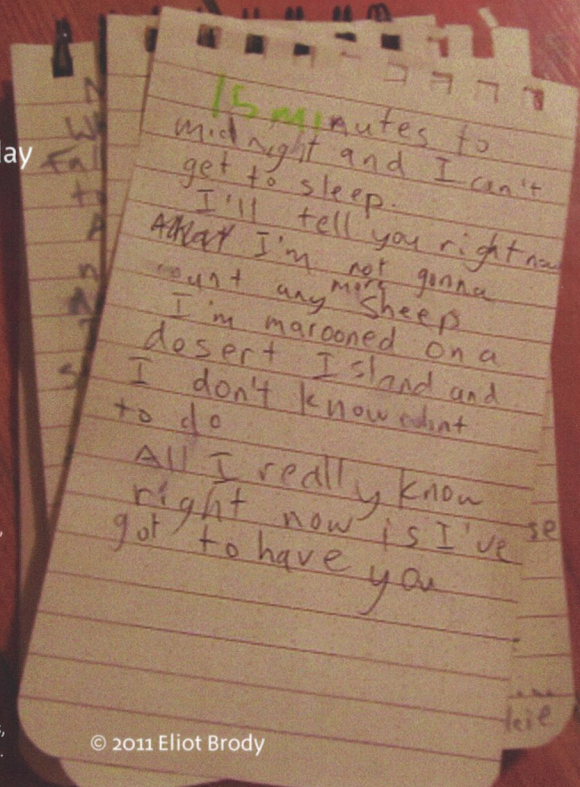 15 minutes to
midnight and I can't
get to sleep.
I'll tell you right now
that I'm not gonna
count any more sheep
I'm marooned on a
desert Island and
I don't know what
to do
All I really know
right now is I've
got to have you
se
© 2011 Eliot Brody